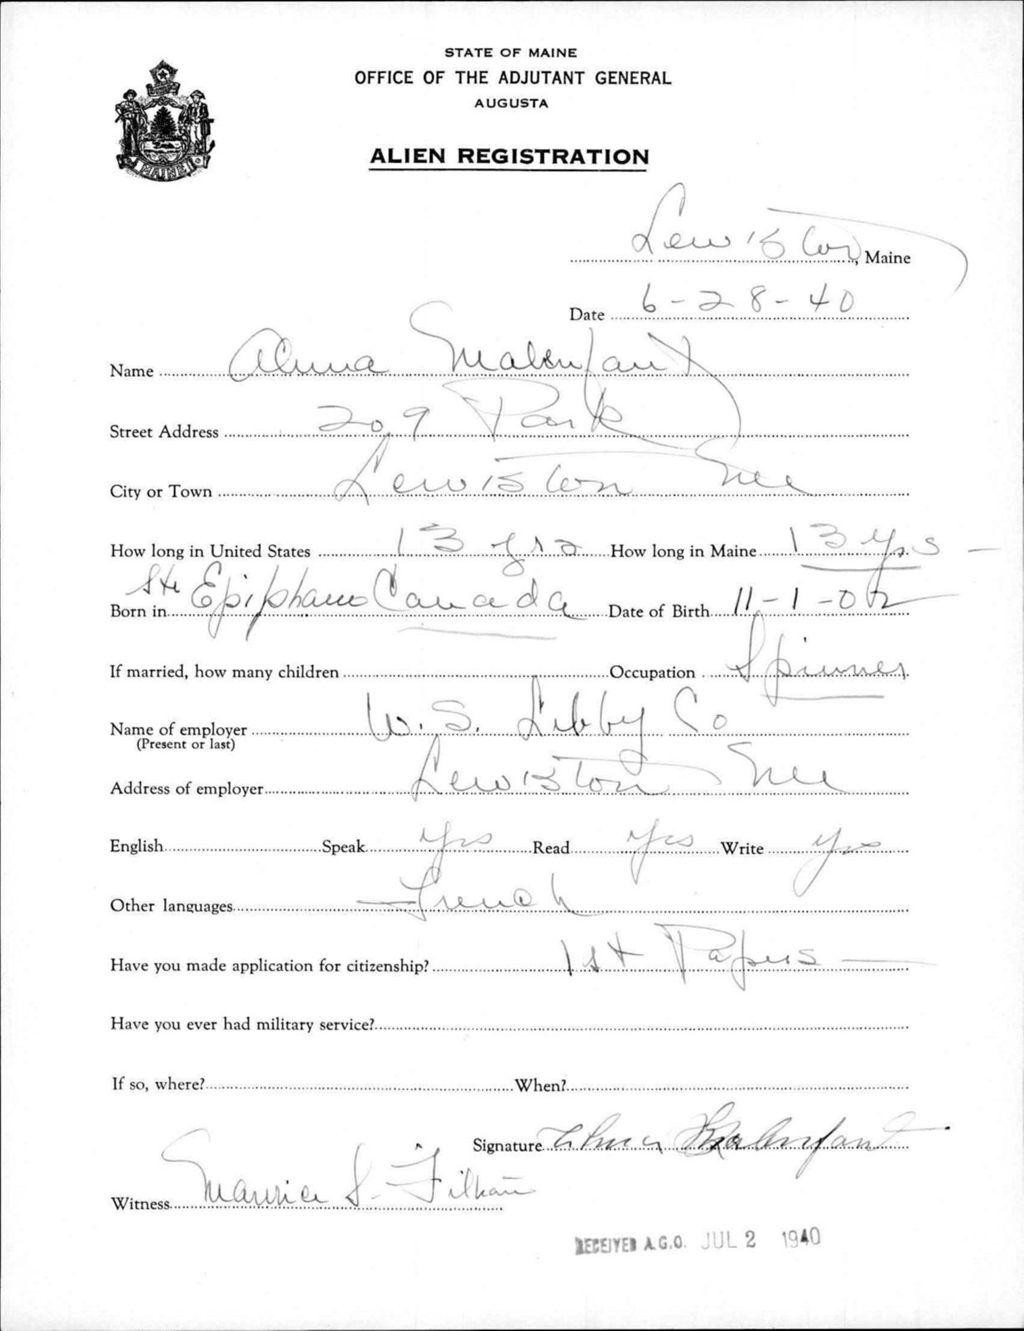 STATE OF MAINE
OFFICE OF THE ADJUTANT GENERAL
AUGUSTA
MAINE
ALIEN REGISTRATION
Lewiston, Maine
Date 6-28-40
Name Alma Malenfant
Street Address 209 Park
City or Town Lewiston Me
How long in United States 13 yrs How long in Maine 13 yrs
Born in Ste Epiphane Canada Date of Birth 11-1-02
If married, how many children Occupation Spinner
Name of employer W. S. Libby Co
(Present or last)
Address of employer Lewiston Me
English Speak yes Read yes Write yes
Other languages French
Have you made application for citizenship? 1st Papers
Have you ever had military service?
If so, where? When?
Signature Alma Malenfant
Witness Maurice S.
RECEIVED A.G.O. JUL 2 1940